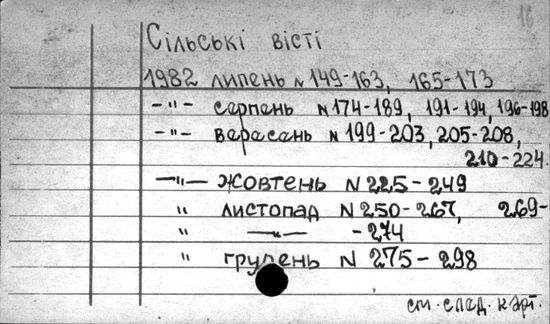 16
Сільські вісті
1982 липень N 149-163, 165-173
-"- серпень N 174-189, 191-194, 196-198
-"- вересень N 199-203, 205-208,
210-224.
-"- жовтень N 225-249
" листопад N 250-267, 269-
" -"- -274
" грудень N 275-298
см. след. карт.